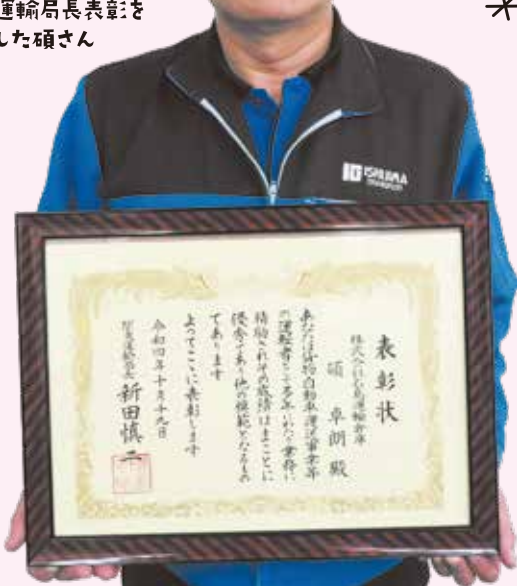 運輸局長表彰を
した碩さん
ISHIJIMA
表彰状
株式会社石島運輸倉庫
碩 卓朗 殿
あなたは貨物自動車運送事業等
の運転者として多年にわたり業務に
精励されその成績はまことに
優秀であり他の模範となるもの
であります
よってここに表彰します
令和四年十月十九日
関東運輸局長 新田慎二